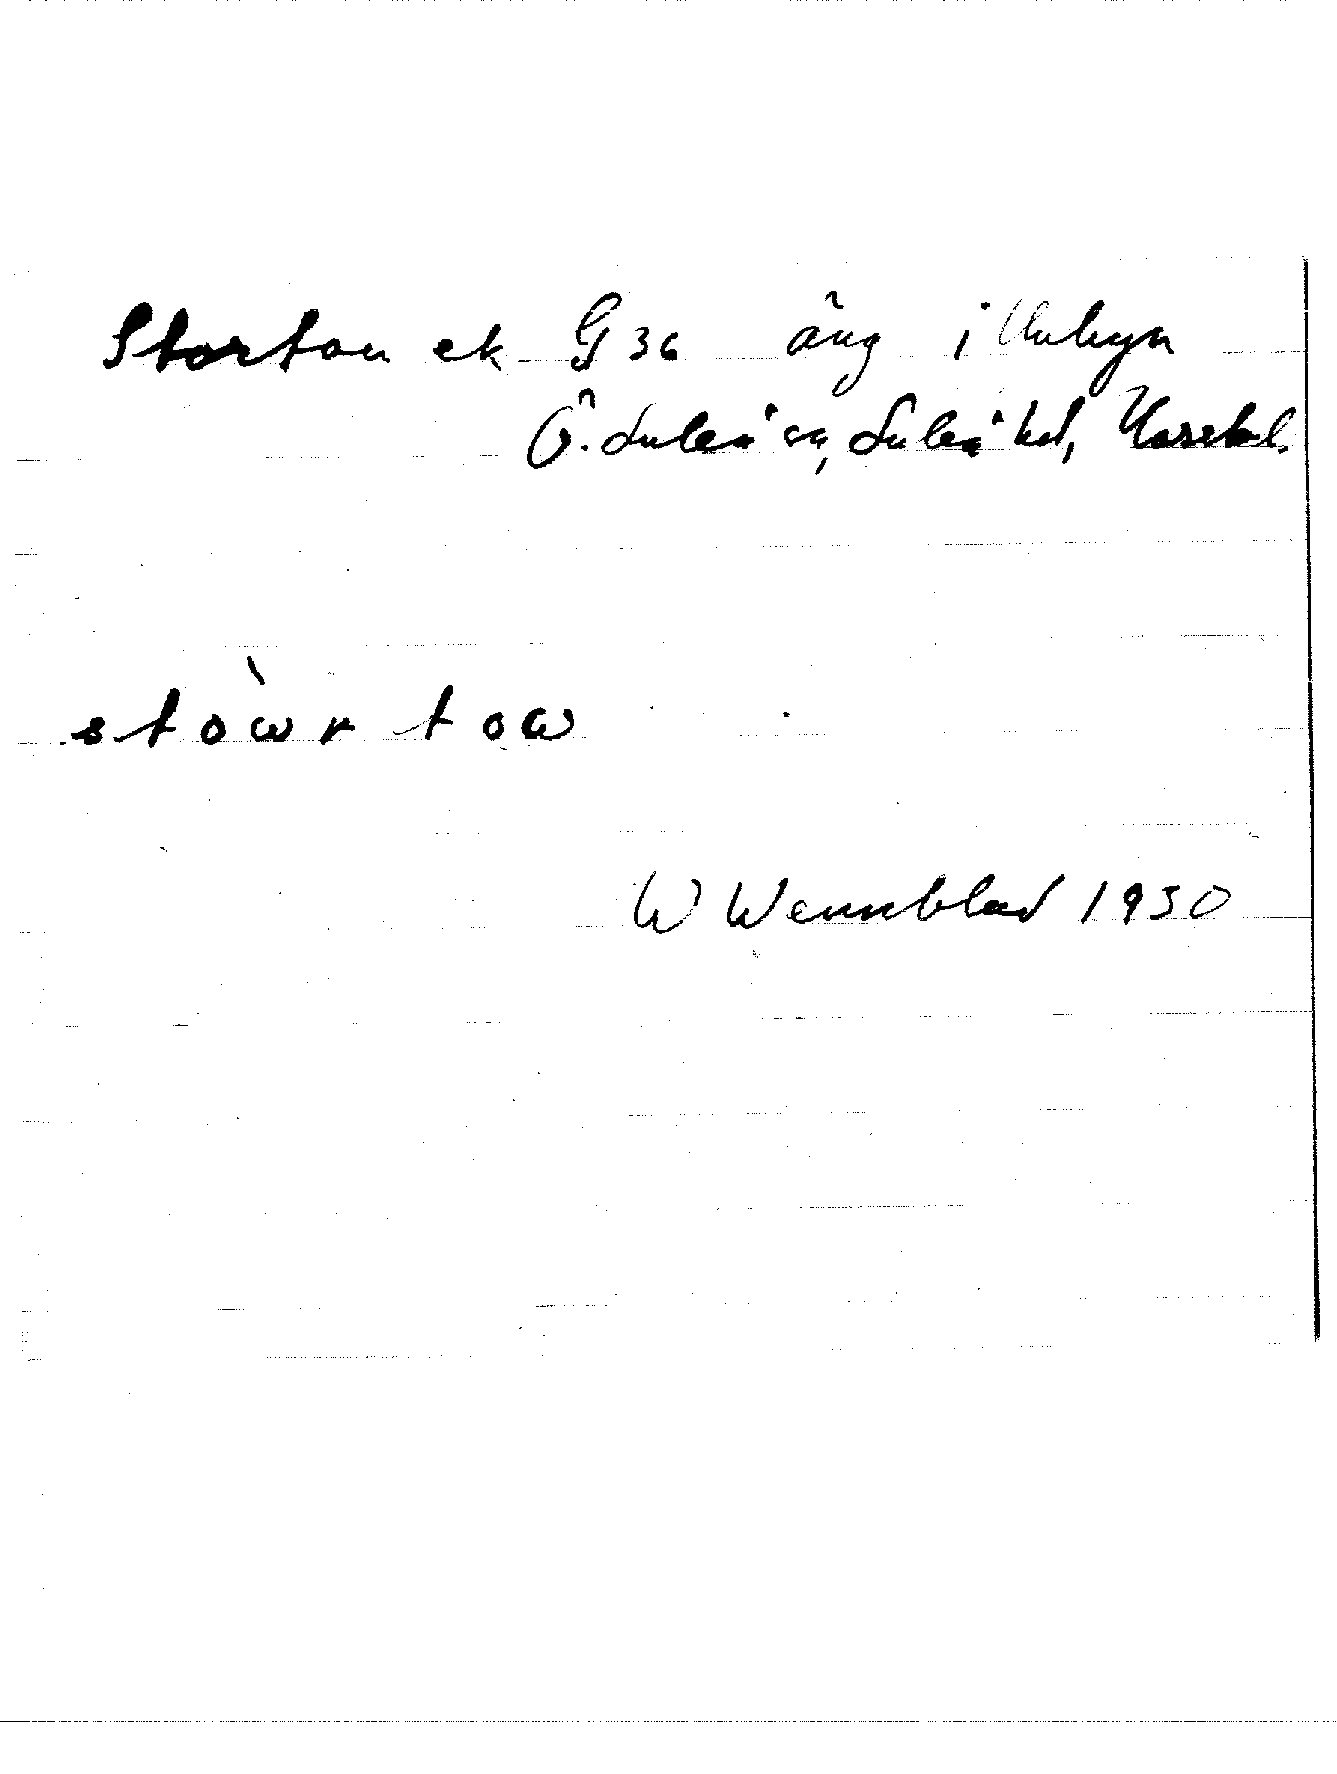 Stortån ek G 36 äng i Unbyn
Ö. Luleå sn, Luleå tsl,
stòwr tow
W Wennblad 1930